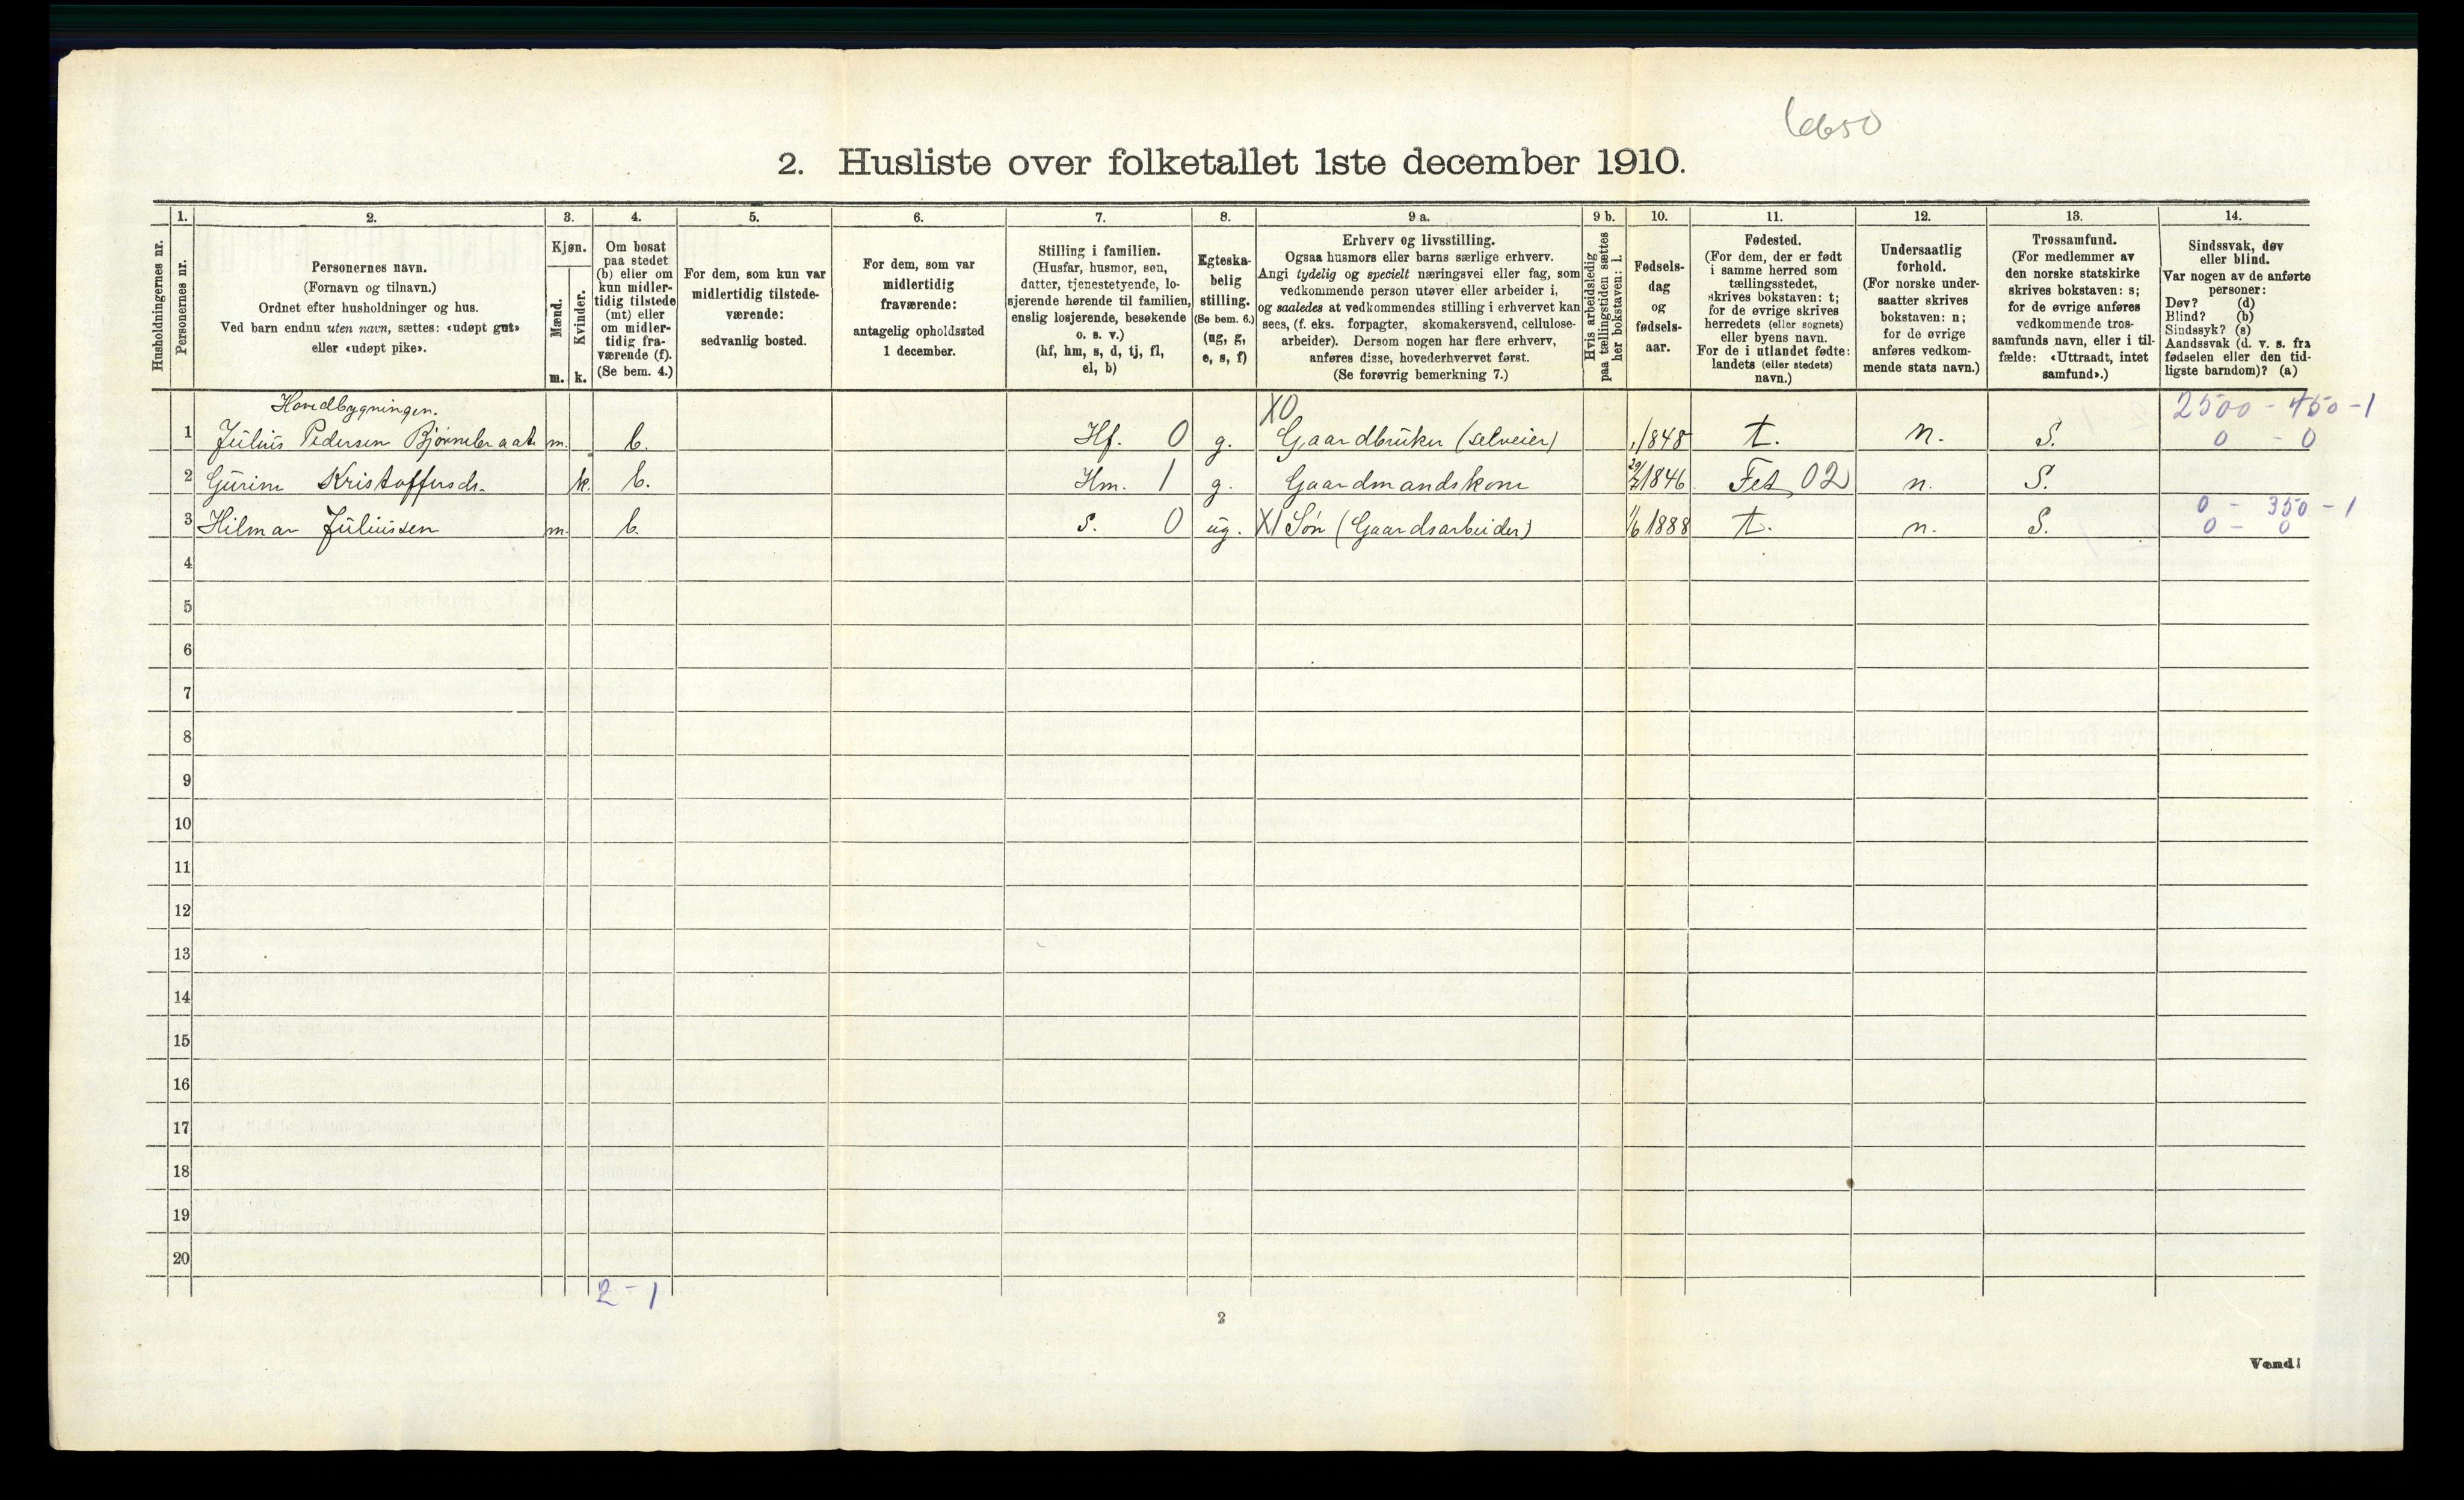 6650
2. Husliste over folketallet 1ste december 1910.
Husholdningernes nr.
1.
Personernes nr.
2.
Personernes navn.
(Fornavn og tilnavn.)
Ordnet efter husholdninger og hus.
Ved barn endnu uten navn, sættes: «udøpt gut»
eller «udøpt pike».
3.
Kjøn.
Mænd.
Kvinder.
m. k.
4.
Om bosat
paa stedet
(b) eller om
kun midler-
tidig tilstede
(mt) eller
om midler-
tidig fra-
værende (f).
(Se bem. 4.)
5.
For dem, som kun var
midlertidig tilstede-
værende:
sedvanlig bosted.
6.
For dem, som var
midlertidig
fraværende:
antagelig opholdssted
1 december.
7.
Stilling i familien.
(Husfar, husmor, søn,
datter, tjenestetyende, lo-
sjerende hørende til familien,
enslig losjerende, besøkende
o. s. v.)
(hf, hm, s, d, tj, fl,
el, b)
8.
Egteska-
belig
stilling.
(Se bem. 6.)
(ug, g,
e, s, f)
9 a.
Erhverv og livsstilling.
Ogsaa husmors eller barns særlige erhverv.
Angi tydelig og specielt næringsvei eller fag, som
vedkommende person utøver eller arbeider i,
og saaledes at vedkommendes stilling i erhvervet kan
sees, (f. eks. forpagter, skomakersvend, cellulose-
arbeider). Dersom nogen har flere erhverv,
anføres disse, hovederhvervet først.
(Se forøvrig bemerkning 7.)
9 b.
Hvis arbeidsledig
paa tællingstiden sættes
her bokstaven: l.
10.
Fødsels-
dag
og
fødsels-
aar.
11.
Fødested.
(For dem, der er født
i samme herred som
tællingsstedet,
skrives bokstaven: t;
for de øvrige skrives
herredets (eller sognets)
eller byens navn.
For de i utlandet fødte:
landets (eller stedets)
navn.)
12.
Undersaatlig
forhold.
(For norske under-
saatter skrives
bokstaven: n;
for de øvrige
anføres vedkom-
mende stats navn.)
13.
Trossamfund.
(For medlemmer av
den norske statskirke
skrives bokstaven: s;
for de øvrige anføres
vedkommende tros-
samfunds navn, eller i til-
fælde: «Uttraadt, intet
samfund».)
14.
Sindssvak, døv
eller blind.
Var nogen av de anførte
personer:
Døv? (d)
Blind? (b)
Sindssyk? (s)
Aandssvak (d. v. s. fra
fødselen eller den tid-
ligste barndom)? (a)
Hovedbygningen. X0 2500 - 450 - 1
1 Julius Pedersen Bjørnebraat m. b. Hf. 0 g. Gaardbruker (selveier) 1848 t. n. S. 0 - 0
2 Gurine Kristoffersdr. k. b. Hm. 1 g. Gaardmandskone 29/7 1846 Fet 02 n. S.
0 - 350 - 1
3 Hilmar Juliussen m. b. S. 0 ug. X1 Søn (Gaardsarbeider) 1/6 1888 t. n. S. 0 - 0
4
5
6
7
8
9
10
11
12
13
14
15
16
17
18
19
20
2 - 1
2
Vend!